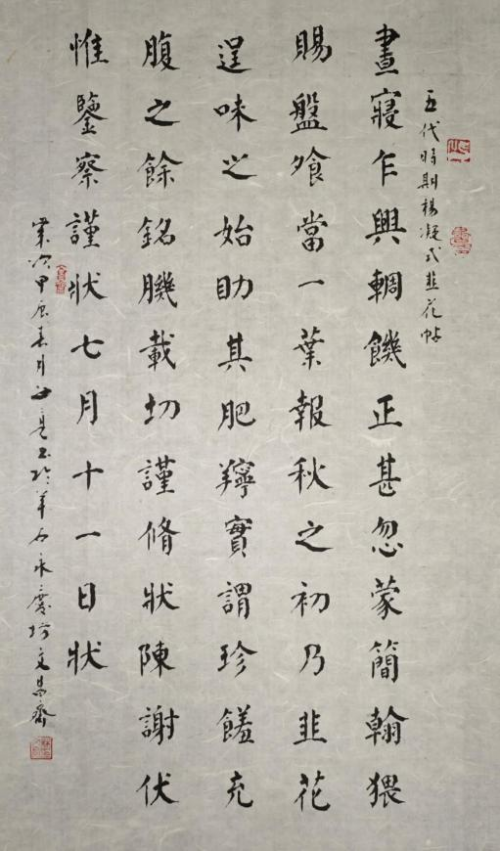 五代時期楊凝式韭花帖
晝寢乍興輖饑正甚忽蒙簡翰猥
賜盤飧當一葉報秋之初乃韭花
逞味之始助其肥羜實謂珍饈充
腹之餘銘肌載切謹脩狀陳謝伏
惟鑒察謹狀七月十一日狀
歲次甲辰春月